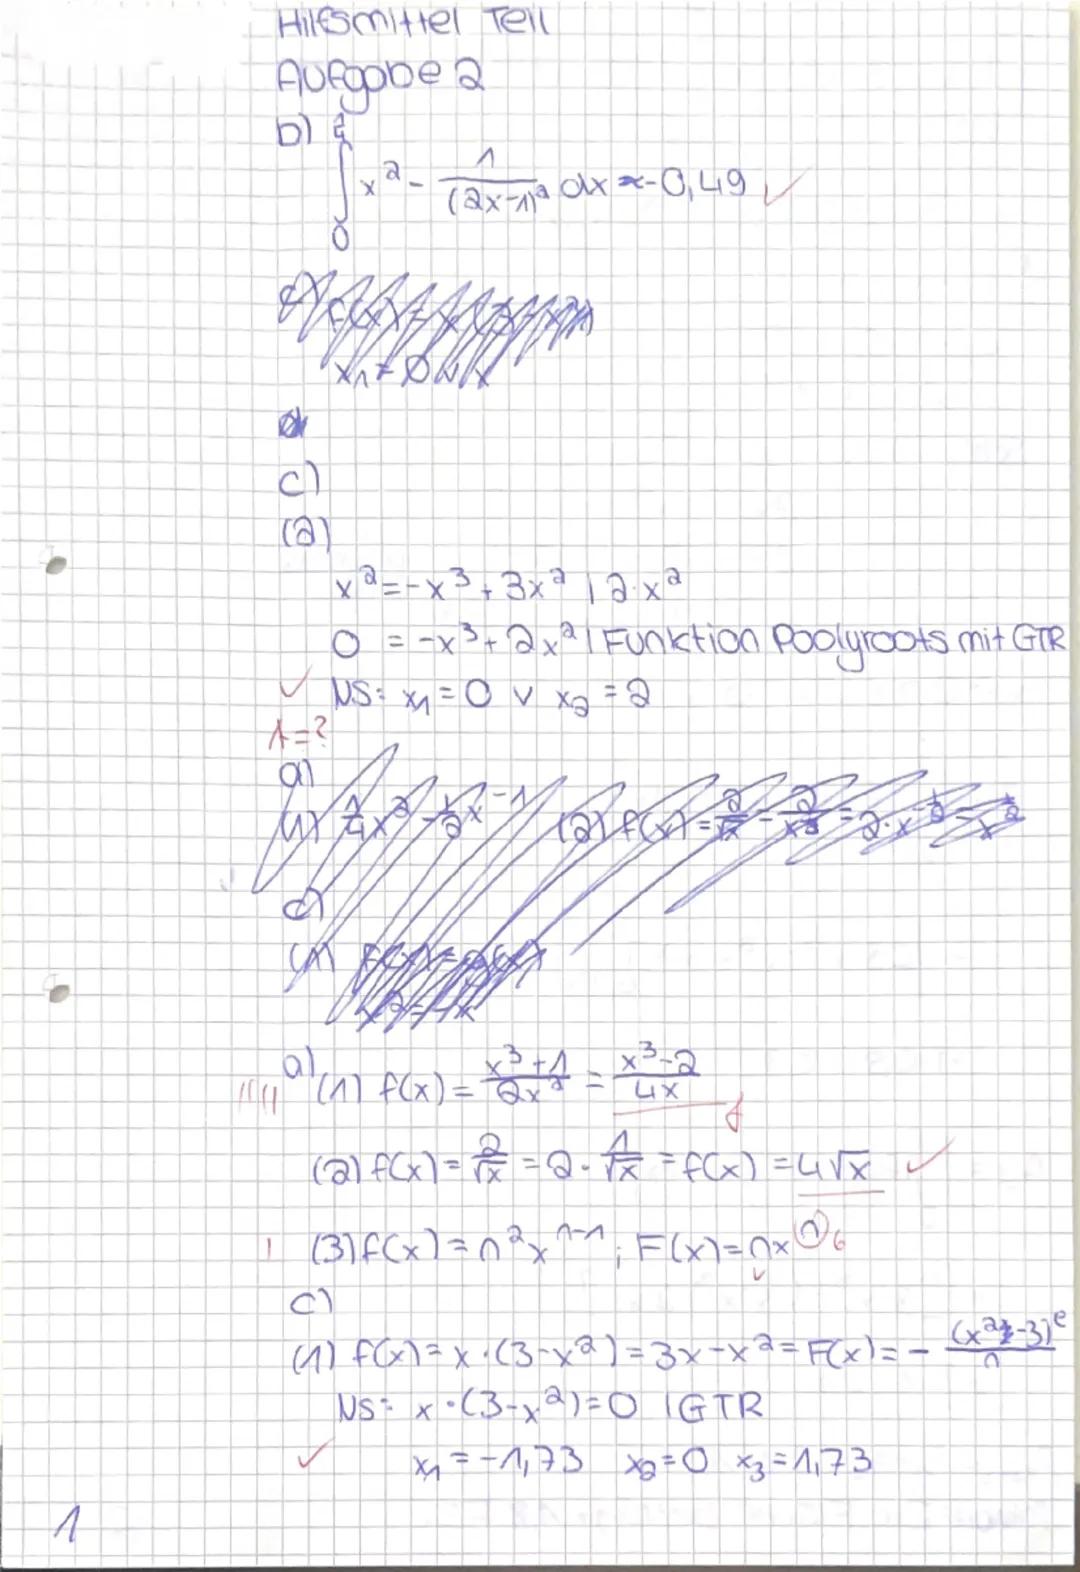 Hilfsmittel Teil
Aufgabe 2
b) ∫ x² - 1/(2x-1)² dx ≈ -0,49 ✓
0
c)
(2)
x² = -x³ + 3x² | 2·x²
0 = -x³ + 2x² | Funktion Poolyroots mit GTR
✓ NS: x₁ = 0 ∨ x₂ = 2
A=?
a)
(2) f(x) =
a) (1) f(x) = (x³+1)/(2x²) = (x³-2)/(4x) f
(2) f(x) = 2/√x = 2 · 1/√x = f(x) = 4√x ✓
(3) f(x) = n²xⁿ⁻¹; F(x) = nxⁿ 6
c)
(1) f(x) = x·(3-x²) = 3x-x² = F(x) = -
NS: x·(3-x²) = 0 | GTR
✓ x₁ = -1,73 x₂ = 0 x₃ = 1,73
1